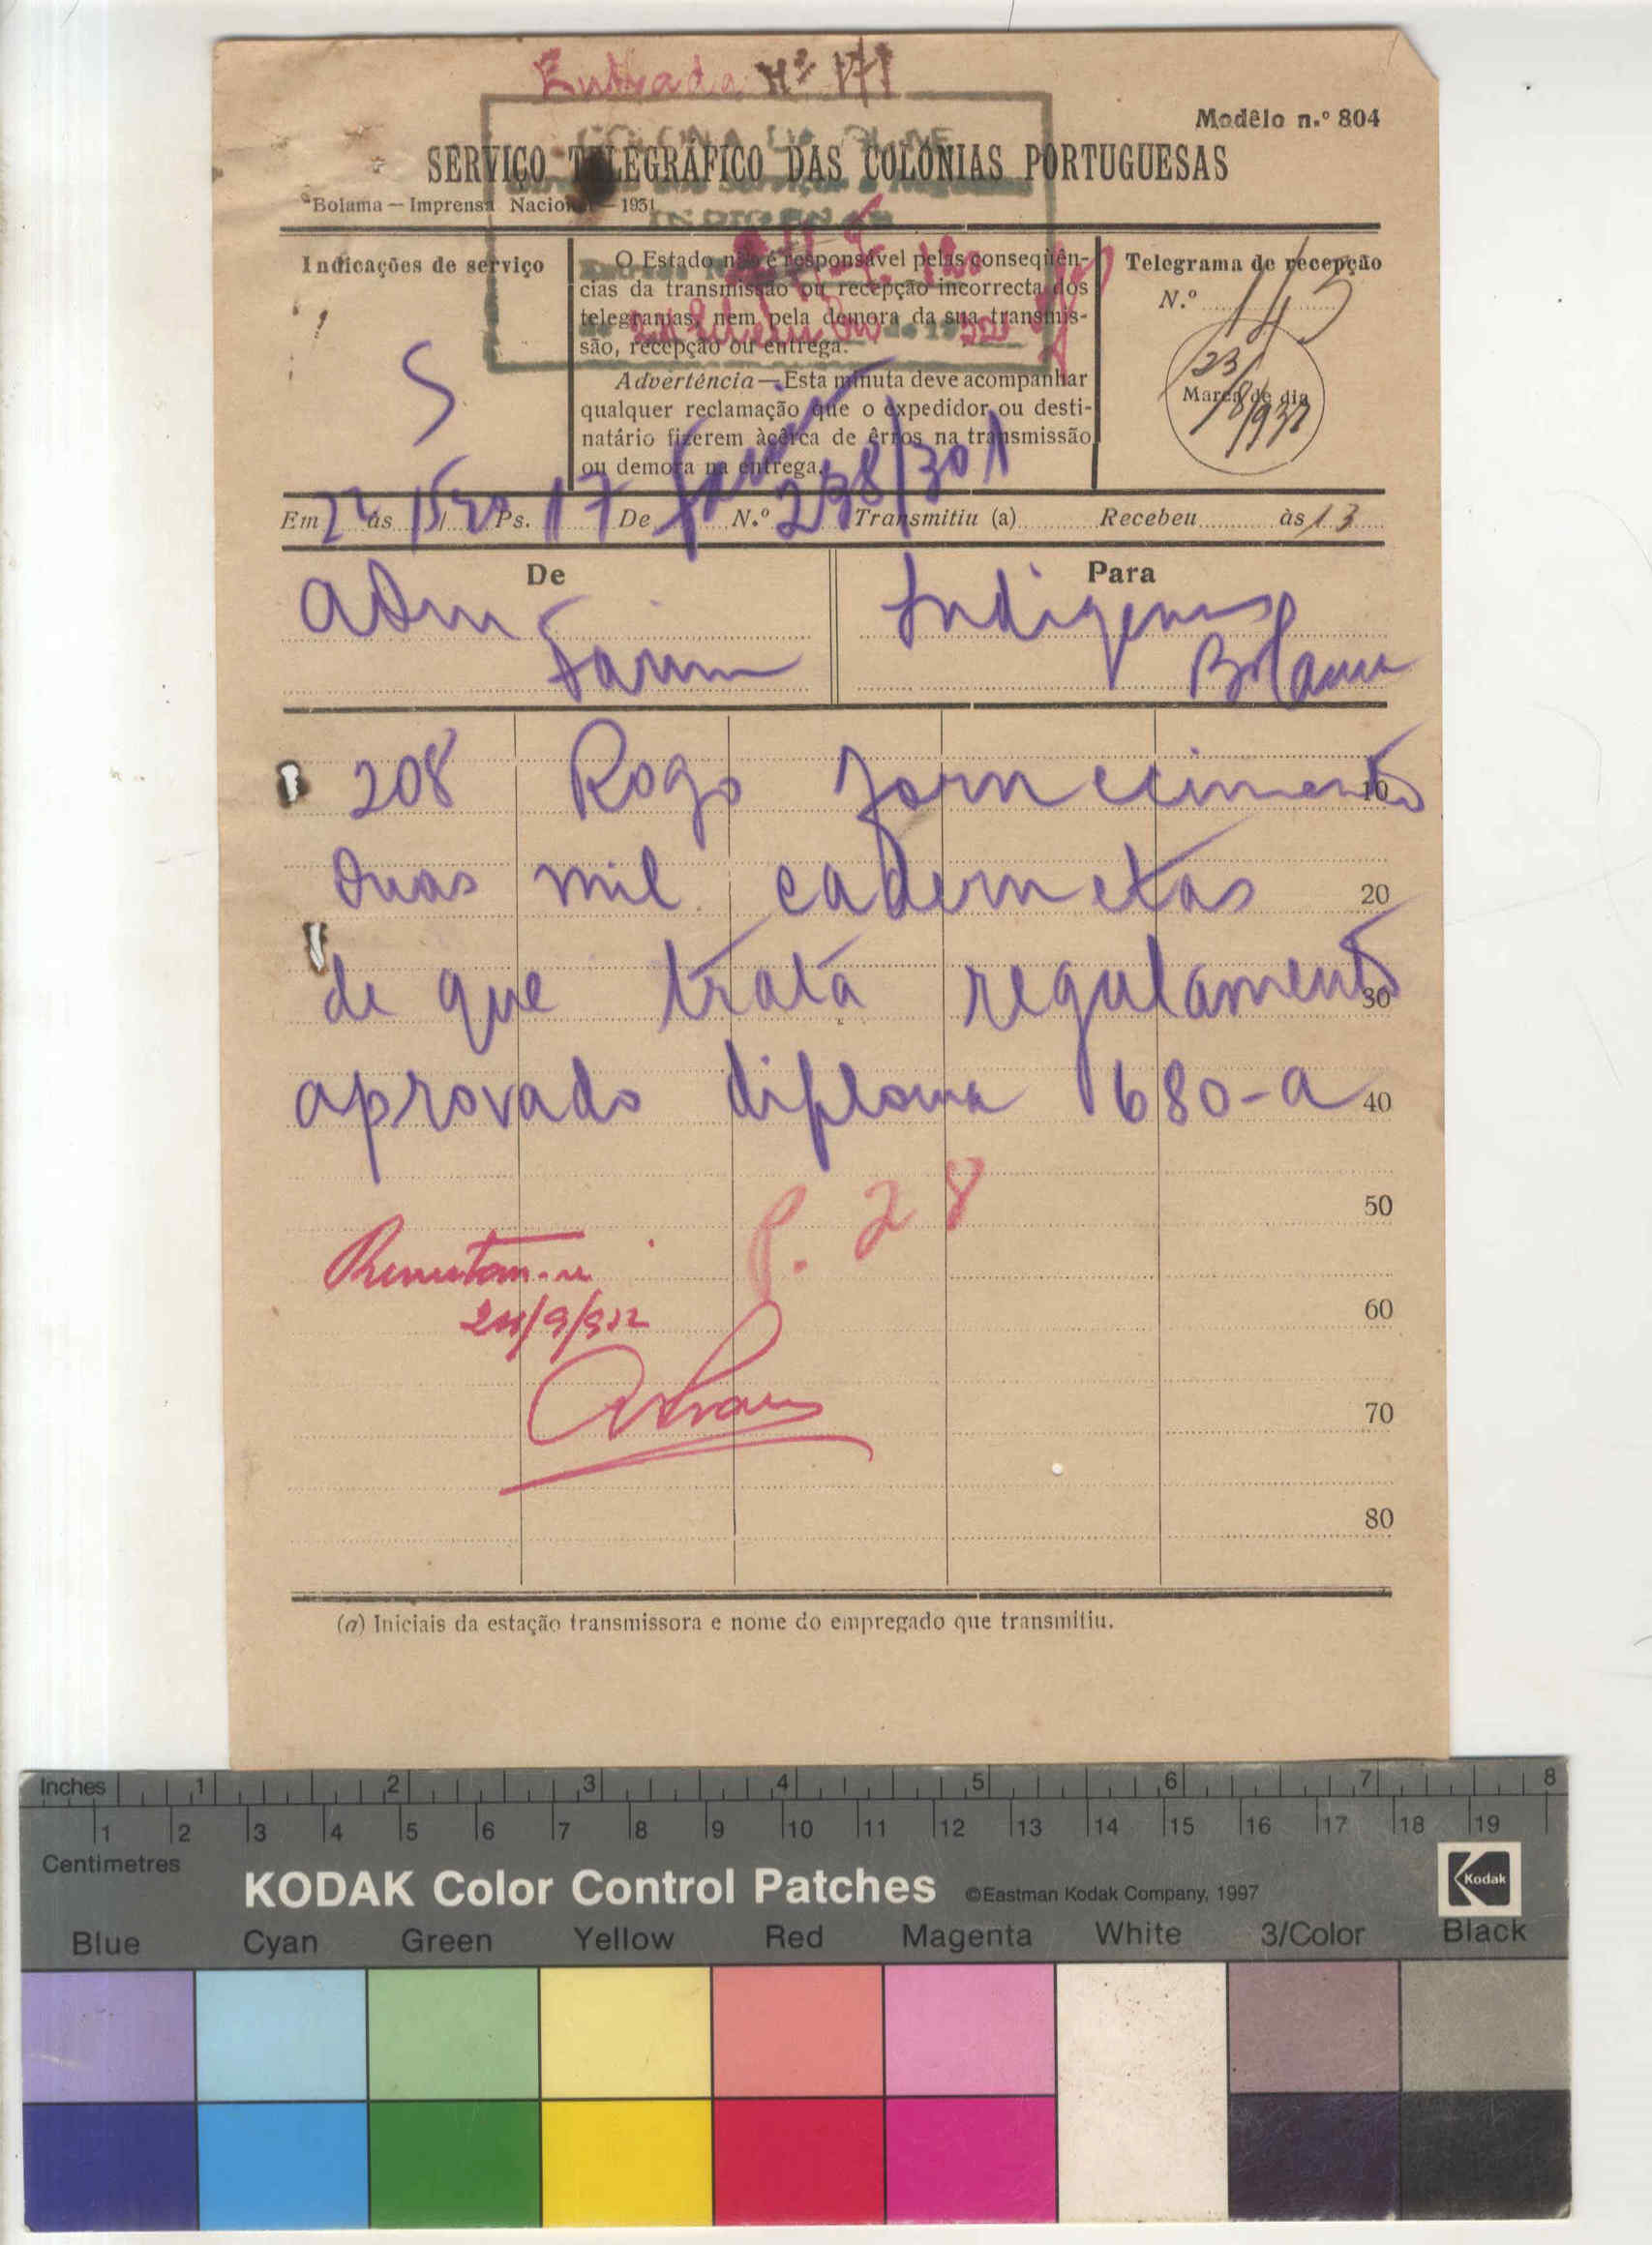 Entrada Nº 171
Modêlo n.º 804
SERVIÇO TELEGRÁFICO DAS COLÓNIAS PORTUGUESAS
Bolama — Imprensa Nacional — 1931
Indicações de serviço
S
O Estado não é responsável pelas conseqüên-
cias da transmissão ou recepção incorrecta dos
telegramas, nem pela demora da sua transmis-
são, recepção ou entrega.
Advertência — Esta minuta deve acompanhar
qualquer reclamação que o expedidor ou desti-
natário fizerem àcêrca de êrros na transmissão
ou demora na entrega.
Telegrama de recepção
N.º
Marca de dia
Em 22 às 15/20 Ps. 17 De Farim N.º 238/301 Transmitiu (a) Recebeu às 13
De
Adm
Farim
Para
Indigenas
Bolama
208 Rogo fornecimento 10
duas mil cadernetas 20
de que trata regulamento 30
aprovado diploma 680-A 40
P. 28
50
60
24/9/932
70
80
(a) Iniciais da estação transmissora e nome do empregado que transmitiu.
Inches 1 2 3 4 5 6 7 8
1 2 3 4 5 6 7 8 9 10 11 12 13 14 15 16 17 18 19
Centimetres
KODAK Color Control Patches ©Eastman Kodak Company, 1997 Kodak
Blue Cyan Green Yellow Red Magenta White 3/Color Black